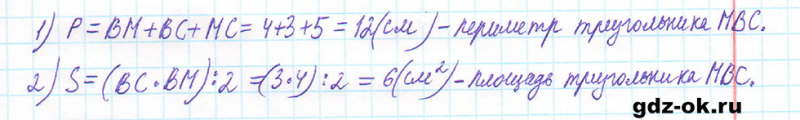 1) P = BM + BC + MC = 4+3+5 = 12(см) – периметр треугольника MBC.
2) S = (BC·BM):2 = (3·4):2 = 6(см²) – площадь треугольника MBC.
gdz-ok.ru